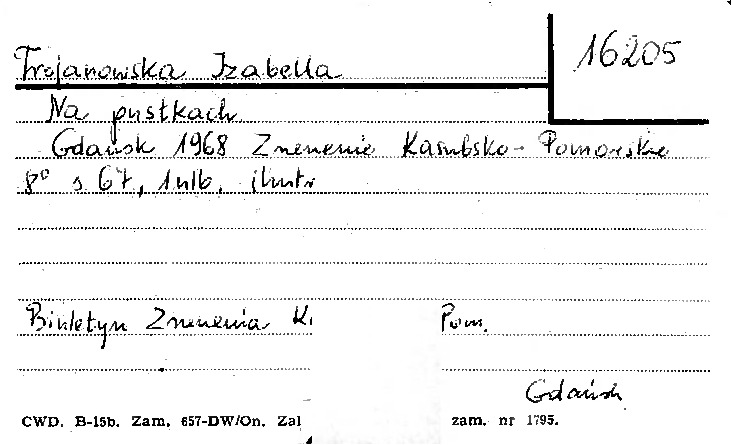 16205
Trojanowska Izabella
Na pustkach
Gdańsk 1968 Zrzeszenie Kaszubsko-Pomorskie
8° s 67, 1 nlb, ilustr
Biuletyn Zrzeszenia K. Pom.
Gdańsk
CWD. B-15b. Zam. 657-DW/On. Zal zam. nr 1795.